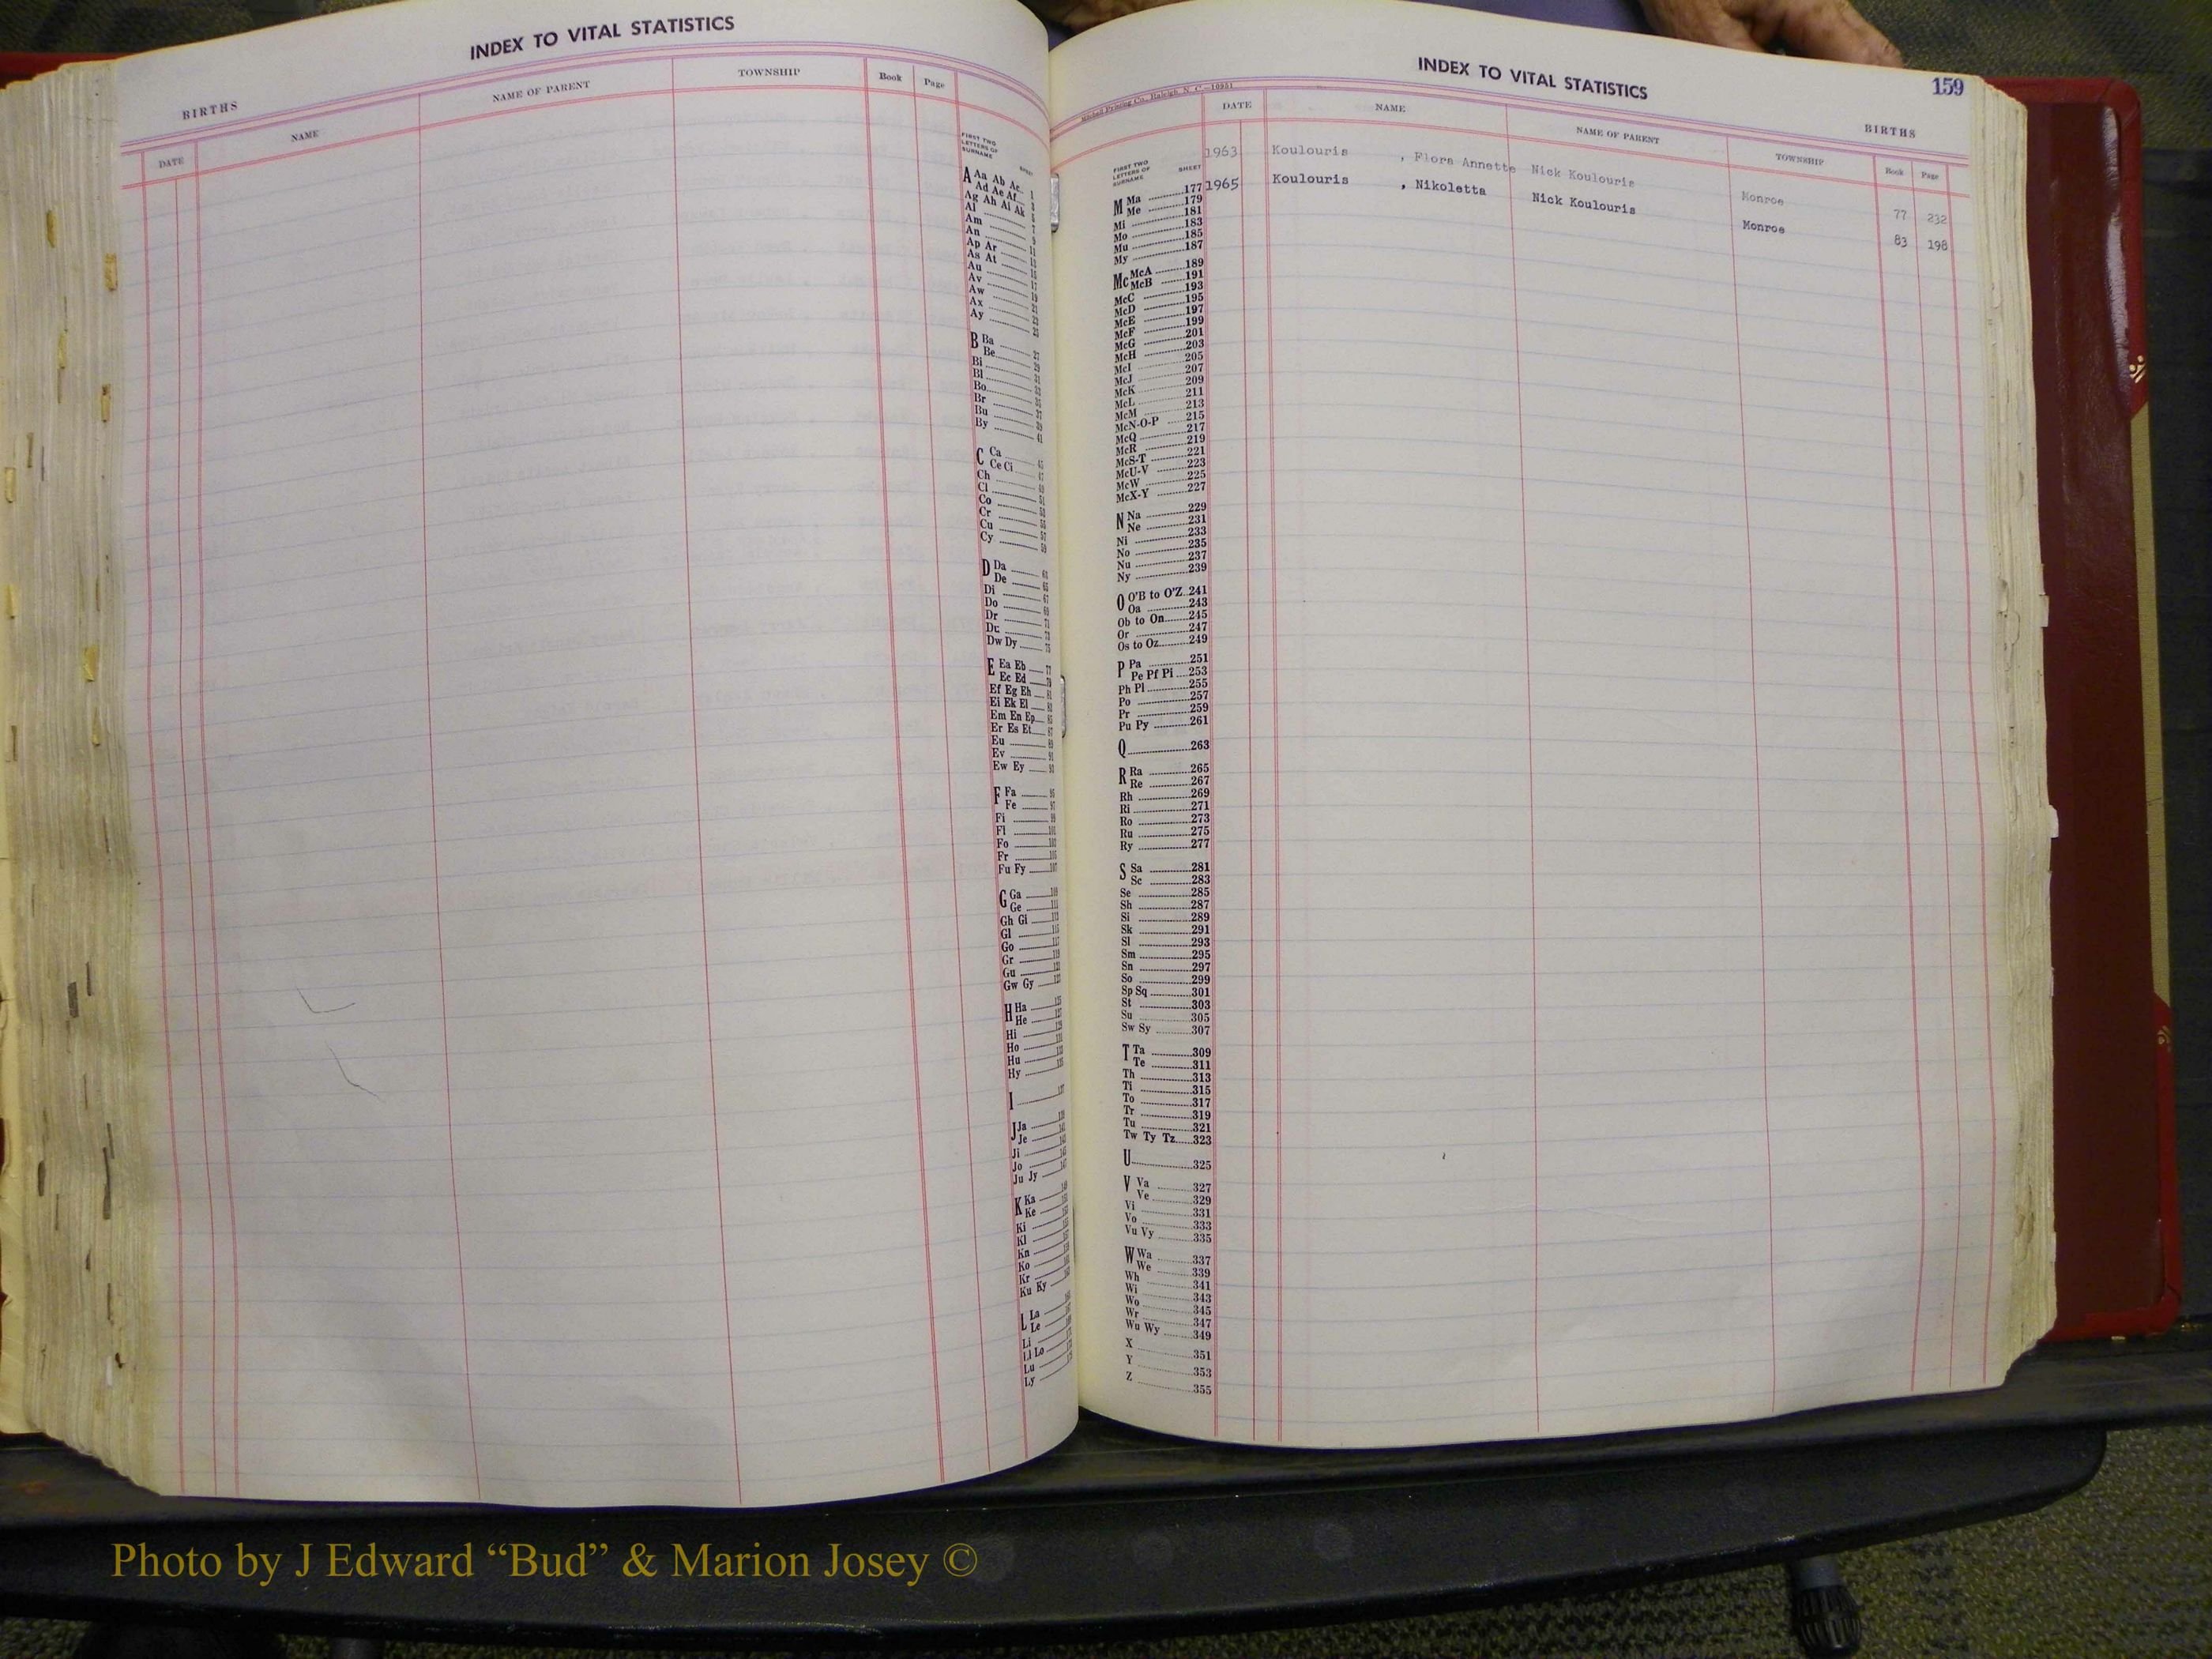 INDEX TO VITAL STATISTICS
BIRTHS
DATE NAME NAME OF PARENT TOWNSHIP Book Page
FIRST TWO
LETTERS OF
SURNAME SHEET
A Aa Ab Ac
Ad Ae Af
Ag Ah Ai Ak
Al
Am
An
Ap Ar
As At
Au
Av
Aw
Ax
Ay
B Ba
Be
Bi
Bl
Bo
Br
Bu
By
C Ca
Ce Ci
Ch
Cl
Co
Cr
Cu
Cy
D Da
De
Di
Do
Dr
Du
Dw Dy
E Ea Eb
Ec Ed
Ef Eg Eh
Ei Ek El
Em En Ep
Er Es Et
Eu
Ev
Ew Ey
F Fa
Fe
Fi
Fl
Fo
Fr
Fu Fy
G Ga
Ge
Gh Gi
Gl
Go
Gr
Gu
Gw Gy
H Ha
He
Hi
Ho
Hu
Hy
I
J Ja
Je
Ji
Jo
Ju Jy
K Ka
Ke
Ki
Kl
Kn
Ko
Kr
Ku Ky
L La
Le
Li
Ll Lo
Lu
Ly
INDEX TO VITAL STATISTICS
159
Mitchell Printing Co., Raleigh, N. C.—10951
BIRTHS
DATE NAME NAME OF PARENT TOWNSHIP Book Page
1963 Koulouris , Flora Annette Nick Koulouris Monroe 77 232
1965 Koulouris , Nikoletta Nick Koulouris Monroe 83 198
FIRST TWO
LETTERS OF
SURNAME SHEET
M Ma 177
Me 179
Mi 181
Mo 183
Mu 185
My 187
Mc McA 189
McB 191
McC 193
McD 195
McE 197
McF 199
McG 201
McH 203
McI 205
McJ 207
McK 209
McL 211
McM 213
McN-O-P 215
McQ 217
McR 219
McS-T 221
McU-V 223
McW 225
McX-Y 227
N Na 229
Ne 231
Ni 233
No 235
Nu 237
Ny 239
O O'B to O'Z 241
Oa 243
Ob to On 245
Or 247
Os to Oz 249
P Pa 251
Pe Pf Pi 253
Ph Pl 255
Po 257
Pr 259
Pu Py 261
Q 263
R Ra 265
Re 267
Rh 269
Ri 271
Ro 273
Ru 275
Ry 277
S Sa 281
Sc 283
Se 285
Sh 287
Si 289
Sk 291
Sl 293
Sm 295
Sn 297
So 299
Sp Sq 301
St 303
Su 305
Sw Sy 307
T Ta 309
Te 311
Th 313
Ti 315
To 317
Tr 319
Tu 321
Tw Ty Tz 323
U 325
V Va 327
Ve 329
Vi 331
Vo 333
Vu Vy 335
W Wa 337
We 339
Wh 341
Wi 343
Wo 345
Wr 347
Wu Wy 349
X 351
Y 353
Z 355
Photo by J Edward “Bud” & Marion Josey ©